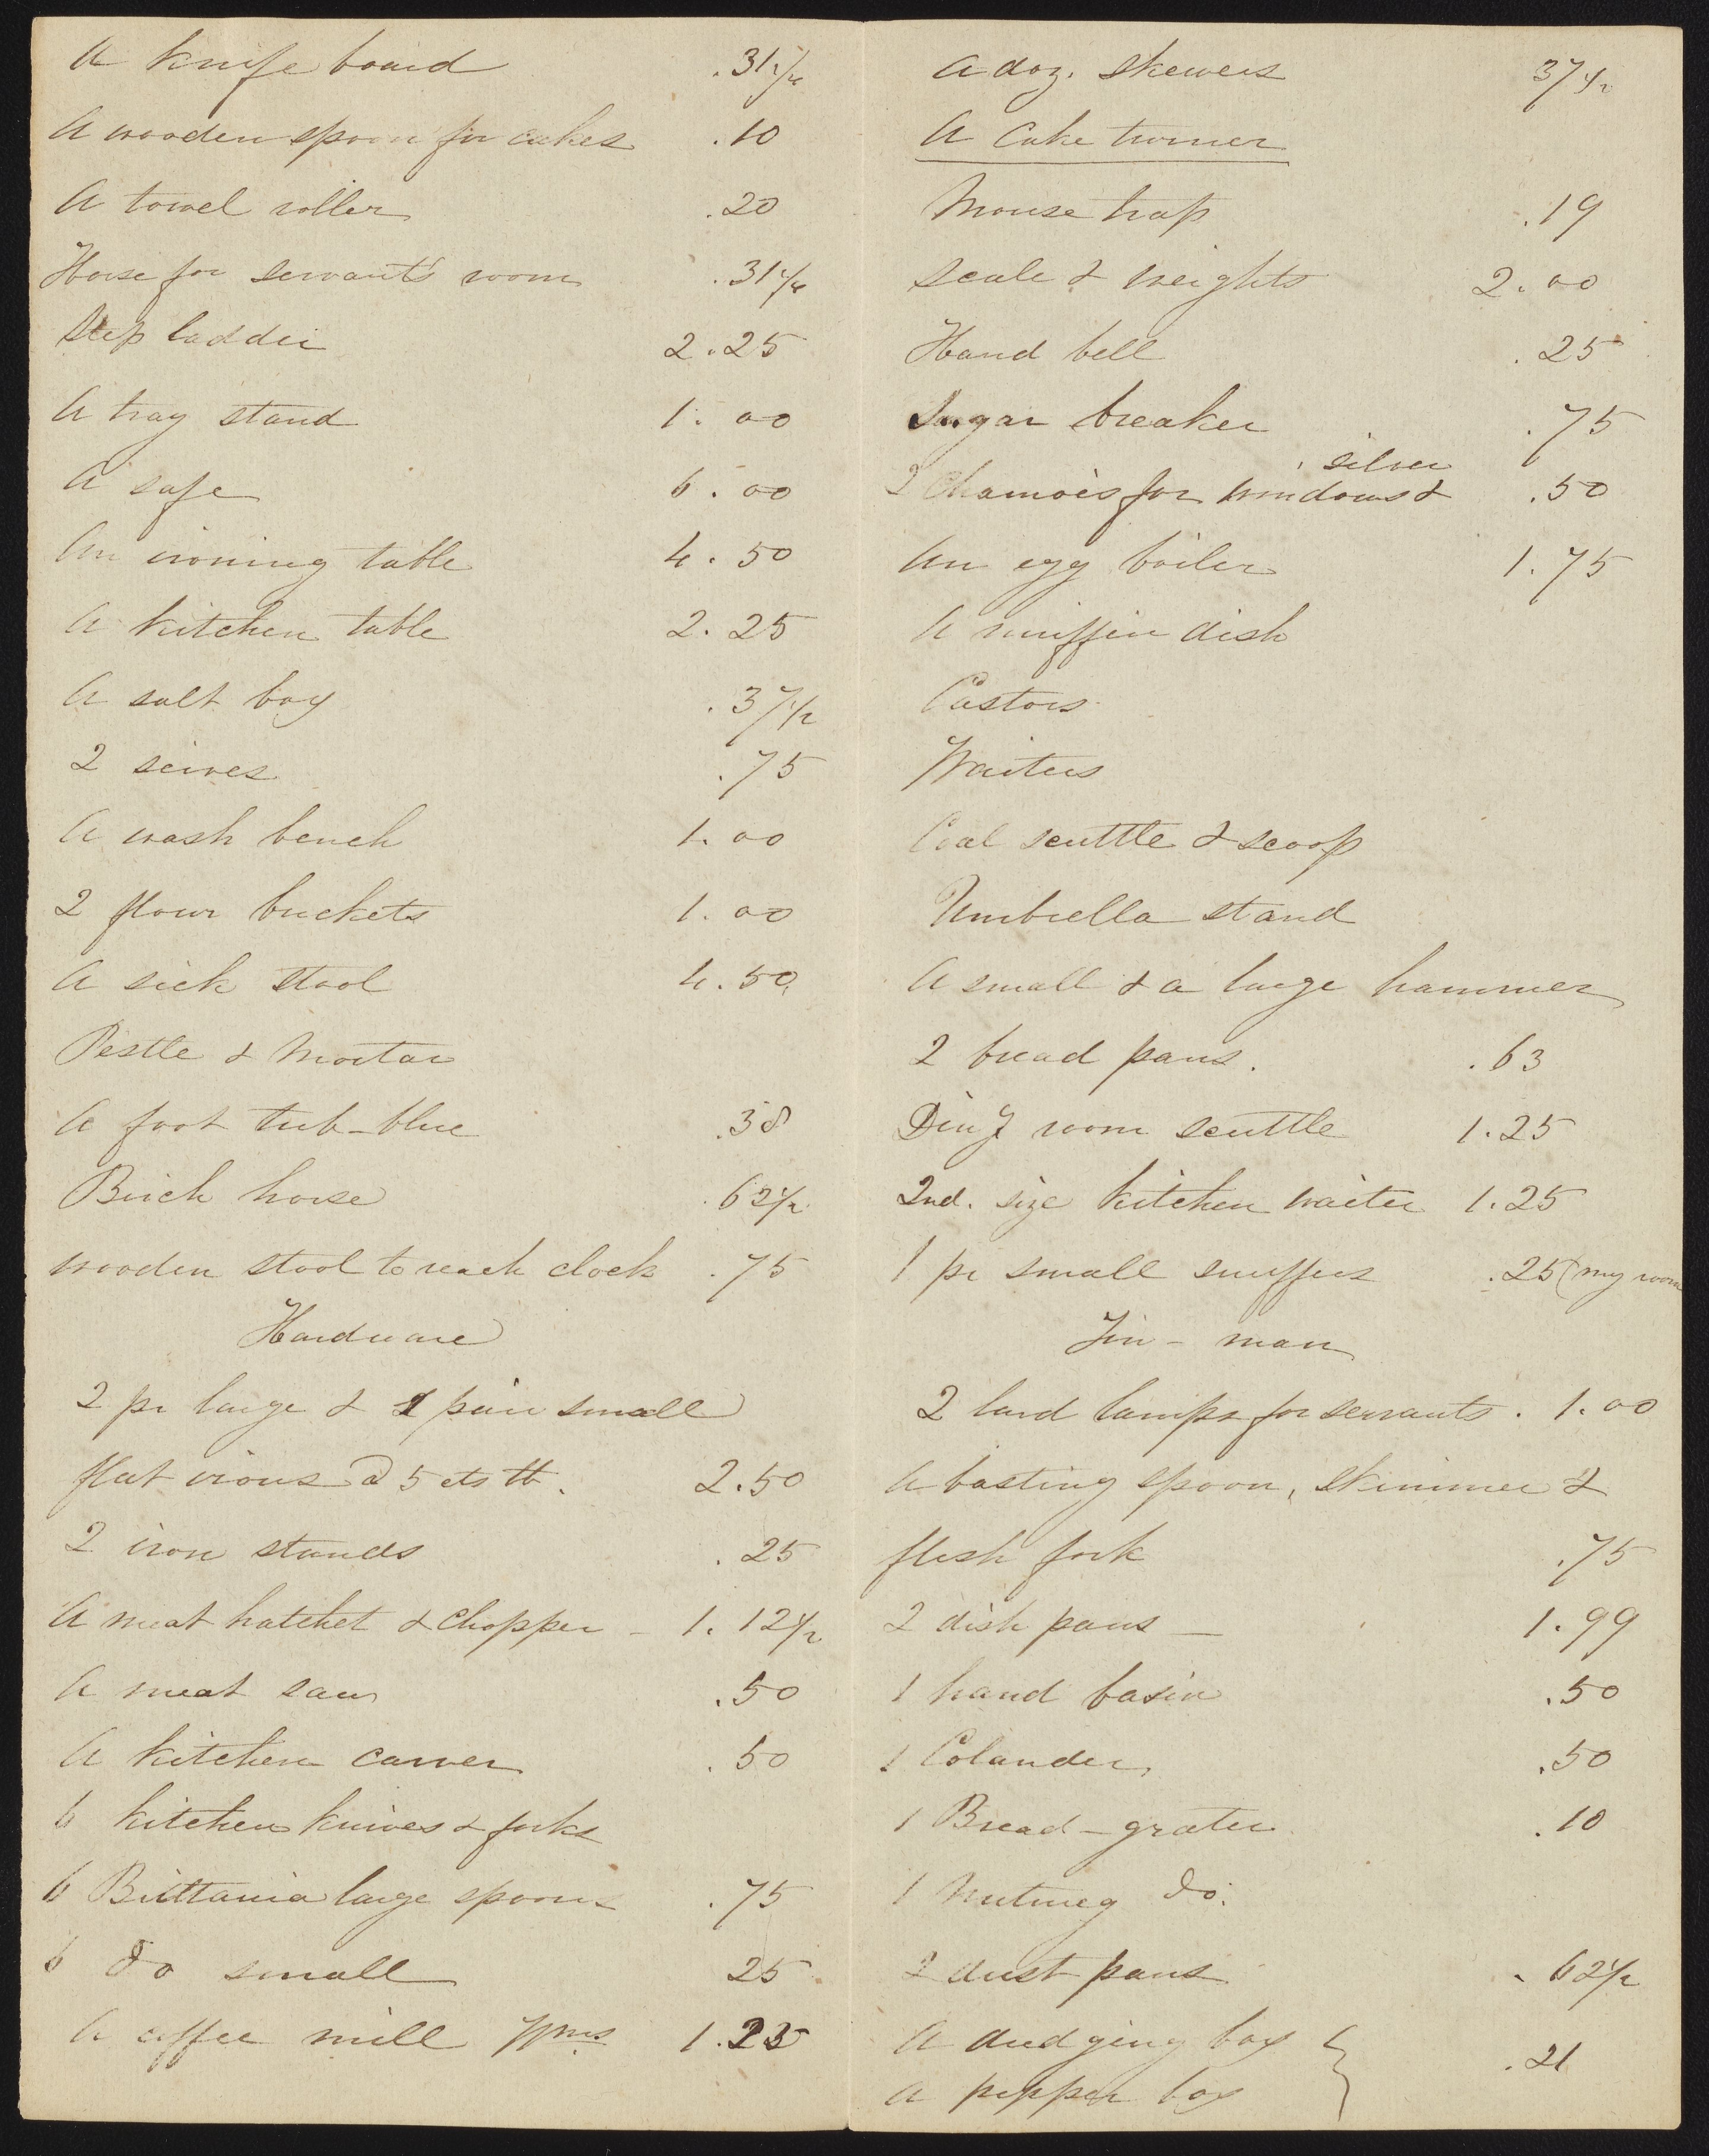 A knife board .31 1/4
A wooden spoon for cakes .10
A towel roller .20
Horse for servant's room .31 1/4
Step ladder 2.25
A tray stand 1.00
A safe 6.00
An ironing table 4.50
A kitchen table 2.25
A salt box .37 1/2
2 seives .75
A wash bench 1.00
2 flour buckets 1.00
A sick stool 4.50
Pestle & Mortar
A foot tub - blue .38
Birch horse .62 1/2
Wooden stool to reach clock .75
Hardware
2 pr large & 1 pair small
flat irons @ 5 cts lb. 2.50
2 iron stands .25
A meat hatchet & Chopper - 1.12 1/2
A meat saw .50
A kitchen carver .50
6 kitchen knives & forks
6 Brittania large spoons .75
6 do small 25
A coffee mill Wms 1.25
A doz. skewers 37 1/2
A Cake turner
Mouse trap .19
Scale & weights 2.00
Hand bell .25
Sugar breaker .75
, silver
2 Chamois for windows & .50
An egg boiler 1.75
A muffin dish
Castors
Waiters
Coal scuttle & scoop
Umbrella stand
A small & a large hammer
2 bread pans. .63
Ding room scuttle 1.25
2nd. size kitchen waiter 1.25
1 pr small snuffers .25 (my room
Tin - man
2 lard lamps for servants. 1.00
A basting spoon, skimmer &
flesh fork .75
2 dish pans — 1.99
1 hand basin .50
1 Colander .50
1 Bread - grater .10
1 Nutmeg do.
2 dust pans .62 1/2
A dredging box } .21
A pepper box